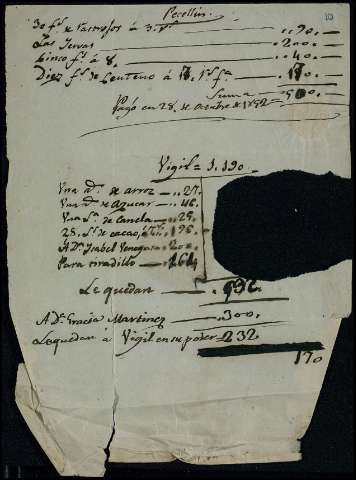 Pecellin.
30 f.s de Garrofos à 3. r.s ... 090.
Las Yervas ... 200.
Cinco f.s à 8. ... 40.
Diez f.s de Centeno à 17. r.s f.a ... 170.
Suma ... 500.
Pagó en 28. de Octubre de 1792
Vigil = 1.190
Una @ de arroz — 27.
Una @ de azucar — 46.
Una L.a de Canela — 25.
28. L.s de cacao, 196.
A D.a Isabel Venegas 200.
Para 164
Le quedan — 532.
A D.a Gracia Martinez — 300.
Le quedan à Vigil en su poder — 232.
170